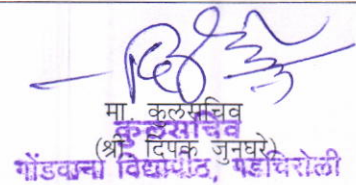 मा. कुलसचिव
कुलसचिव
(श्री. दिपक जुनघरे)
गोंडवाना विद्यापीठ, गडचिरोली